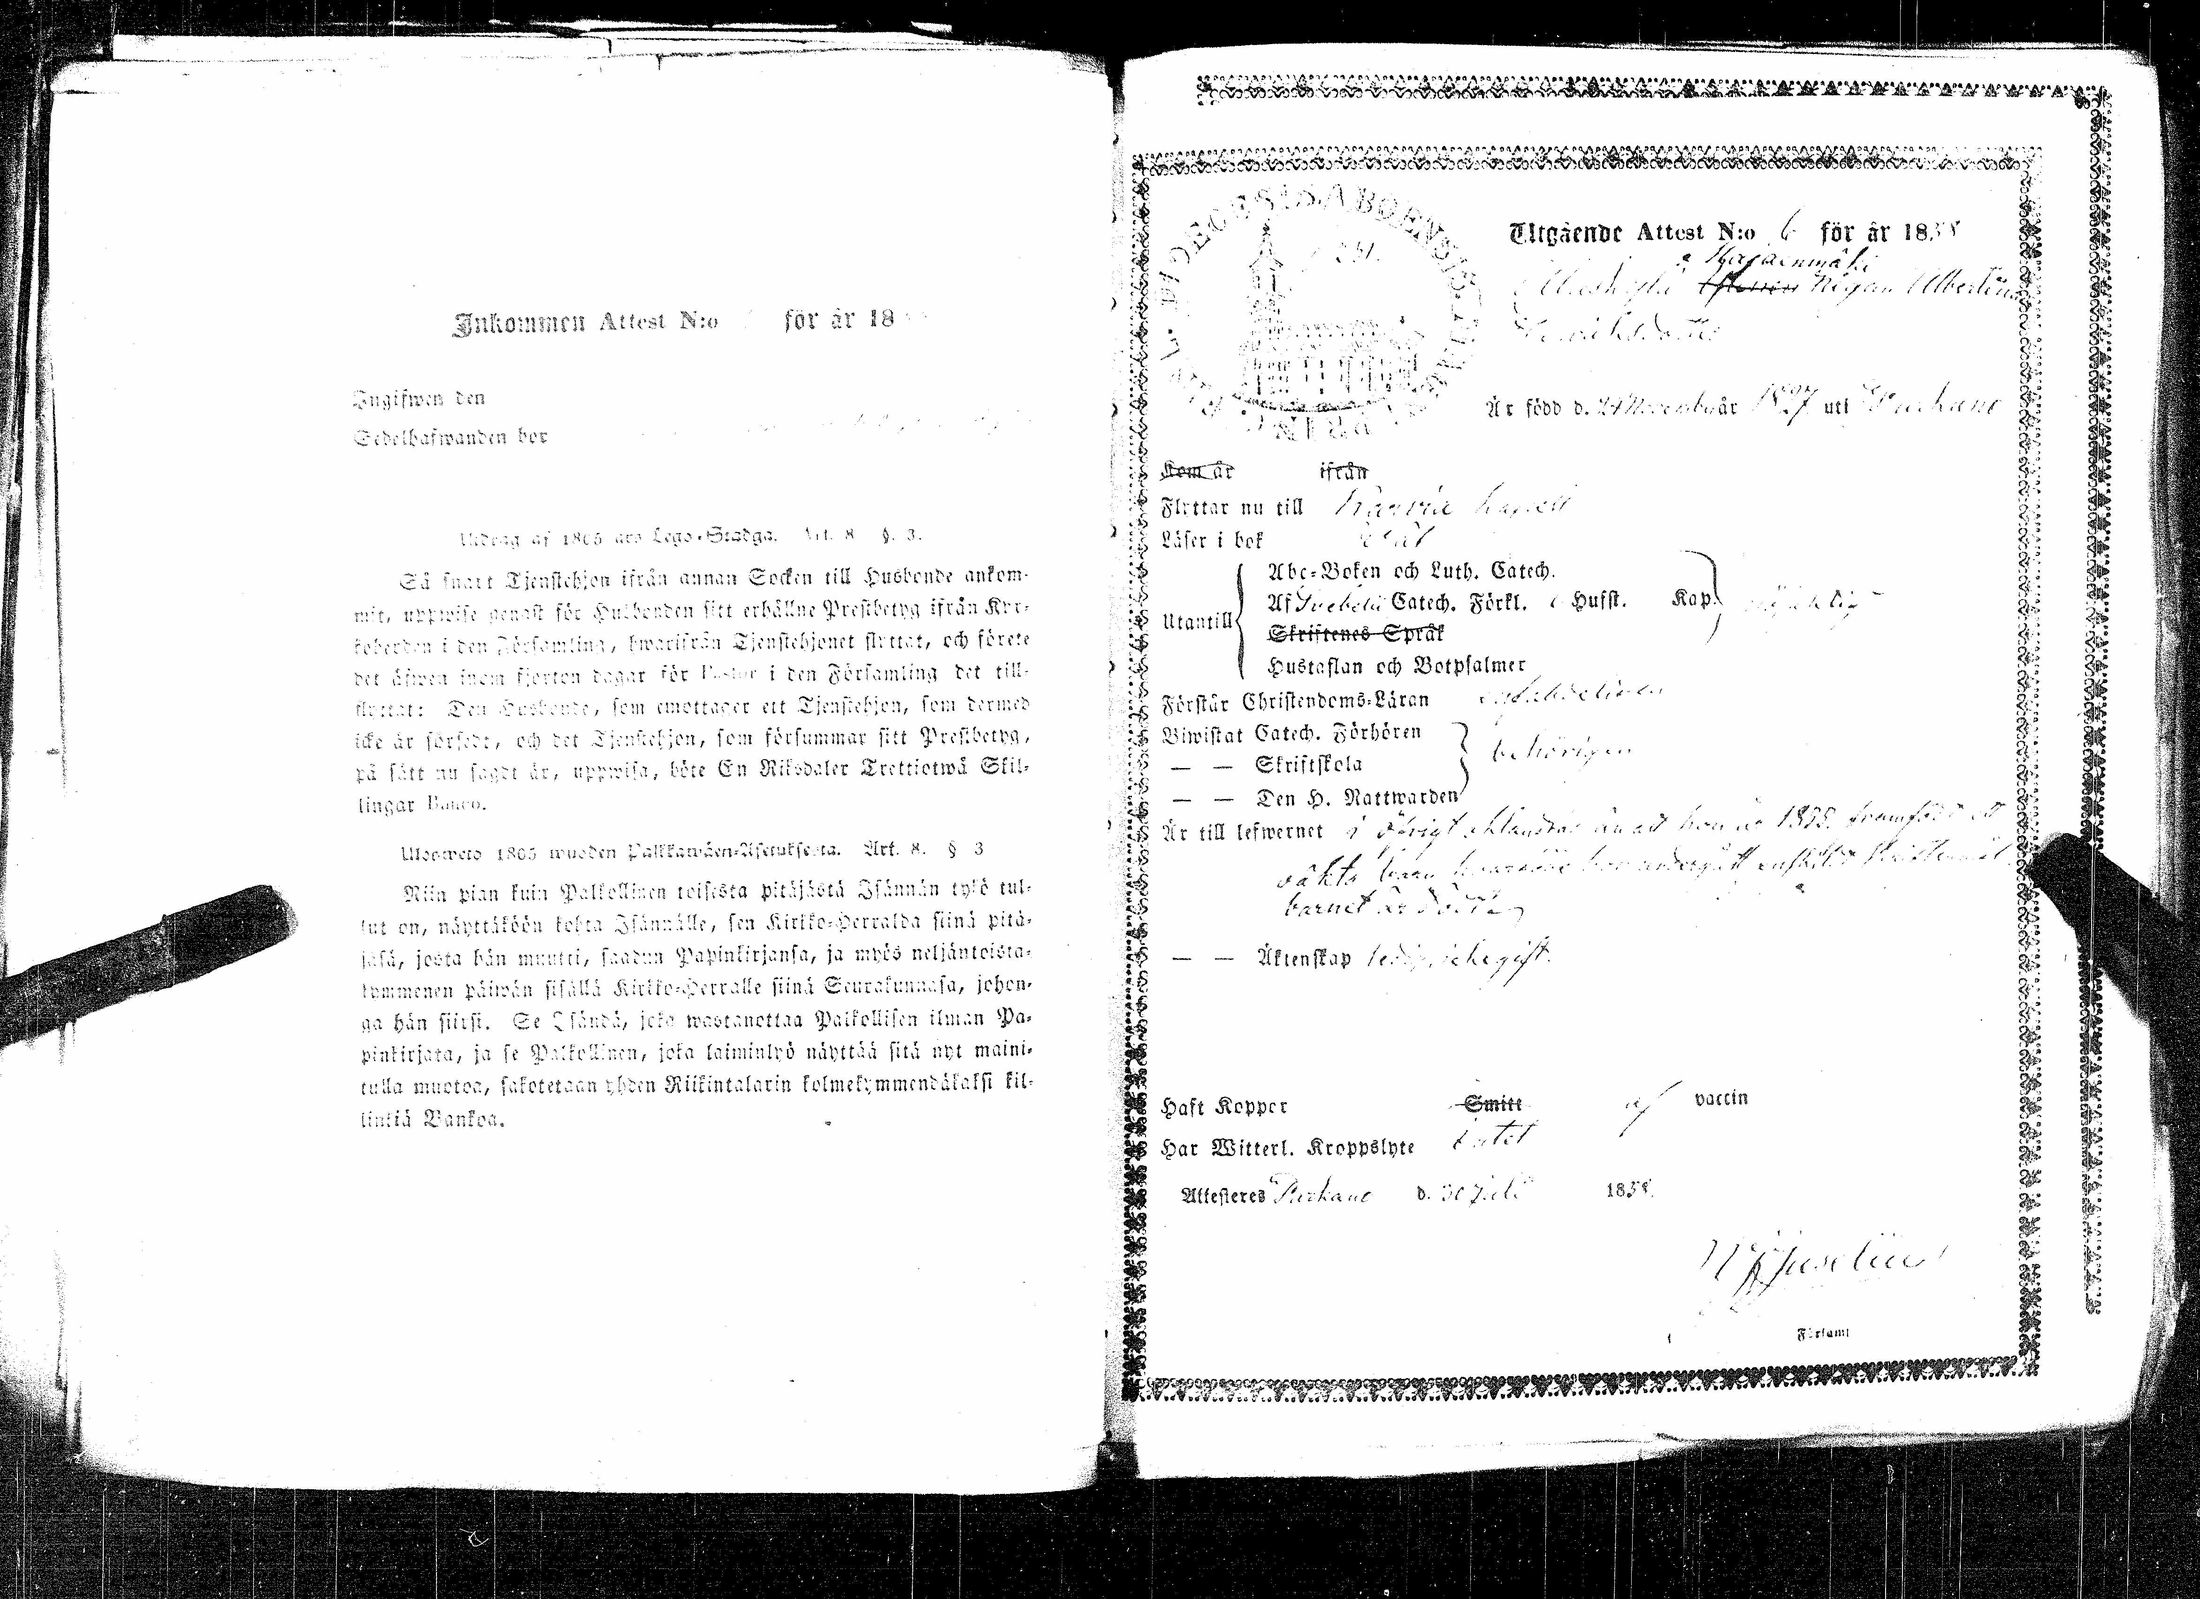 Inkommen Attest N:o för år 18
Ingifwen den
Sedelhafwanden bor
Utdrag af 1805 års Lego-Stadga. Art. 8 §. 3.
Så snart Tjenstehjon ifrån annan Socken till Husbonde ankom-
mit, uppwise genast för Husbonden sitt erhållne Prestbetyg ifrån Kyr-
koherden i den Församling, hwarifrån Tjenstehjonet flyttat, och förete
det äfwen inom fjorton dagar för Pastor i den Församling det till-
flyttat: Den Husbonde, som emottager ett Tjenstehjon, som dermed
icke är försedt, och det Tjenstehjon, som försummar sitt Prestbetyg,
på sätt nu sagdt är, uppwisa, böte En Riksdaler Trettiotwå Skil-
lingar Banco.
Ulosweto 1805 wuoden Palkkawäen-Asetuksesta. Art. 8. § 3
Niin pian kuin Palkollinen toisesta pitäjästä Isännän tykö tul-
lut on, näyttäköön kohta Isännälle, sen Kirkko-Herralda siinä pitä-
jäsä, josta hän muutti, saadun Papinkirjansa, ja myös neljäntoista-
kymmenen päiwän sisällä Kirkko-Herralle siinä Seurakunnasa, johon-
ga hän siirsi. Se Isändä, joka wastanottaa Palkollisen ilman Pa-
pinkirjata, ja se Palkollinen, joka laiminlyö näyttää sitä nyt maini-
tulla muotoa, sakotetaan yhden Riikintalarin kolmekymmendäkaksi kil-
linkiä Bankoa.
DIOECESIS ABOENSIS
Utgående Attest N:o 6 för år 1858
Pigan Albertina
Henriksdotter
Är född d. 24 November år 1827 uti Parkano
Kom år ifrån
Flyttar nu till Karvia kapell
Läser i bok
Utantill
Abc-Boken och Luth. Catech.
Af Svebelii Catech. Förkl. o Husft. Kap.
Skriftenes Språk
Hustaflan och Botpsalmer
Förstår Christendoms-Läran
Biwistat Catech. Förhören
— — Skriftskola
behörigen
— — Den H. Nattwarden
Är till lefwernet i öfrigt oklandrad än att hon år 1855 framfödt ett
oäkta barn hvarföre hon undergått enskildt Skriftermål
barnet är dödt
— — Äktenskap ledig, icke gift.
Haft Koppor Smitt af vaccin
Har Witterl. Kroppslyte intet
Attesteres Parkano d. 30 Juli 1858.
Församl